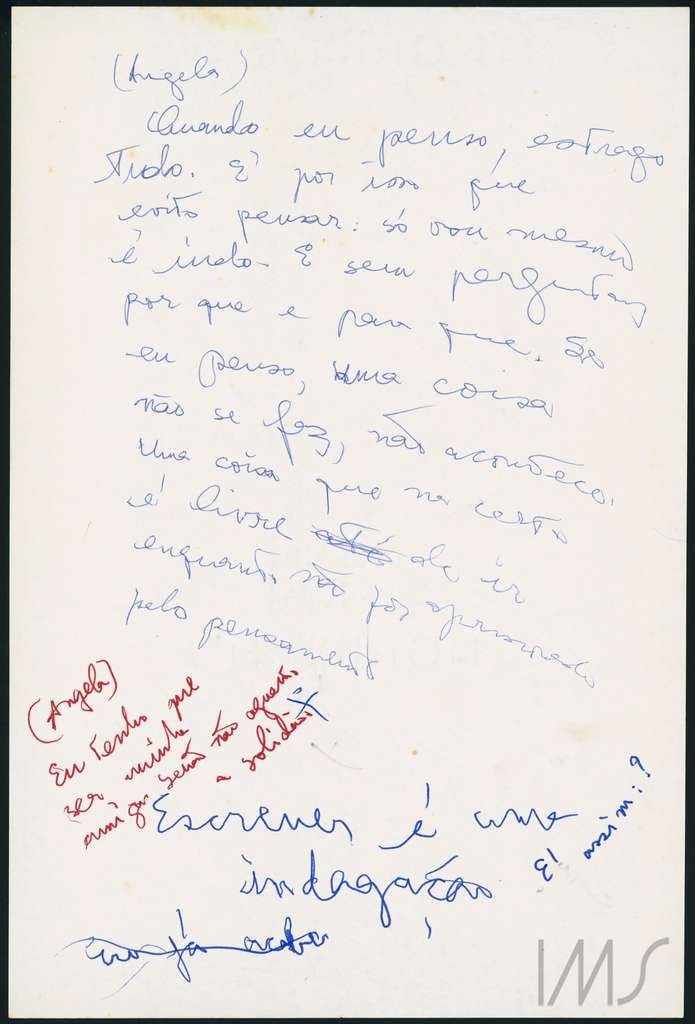 (Angela)
Quando eu penso, estrago
tudo. É por isso que
evito pensar: só vou mesmo
é indo. E sem perguntas
por que e para que. Se
eu penso, uma coisa
não se faz, não aconteço.
Uma coisa que na certa
é livre até de ir
enquanto não for aprisionada
pelo pensamento
(Angela)
Eu tenho que
ser minha
amiga senão não aguento
a solidão.
Escrever é uma
indagação
É assim:?
já acabar
IMS